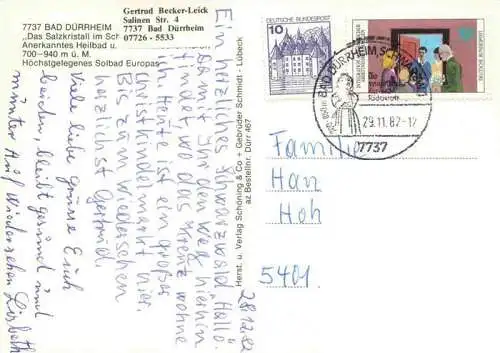 7737 BAD DÜRRHEIM
"Das Salzkristall im Sch
Anerkanntes Heilbad u.
700–940 m ü. M.
Höchstgelegenes Solbad Europas
Gertrud Becker-Leick
Salinen Str. 4
7737 Bad Dürrheim
07726 - 5533
Ein herzliches Schwarzwald "Hallo"
Damit Ihr den Weg hierhin
findet, wo das Kreuz wohne
ich. Heute ist ein großer
Christkindelmarkt hier.
Bis zum Wiedersehen
herzlichst Gertrud
Viele liebe Grüsse Euch
beiden, bleibt gesund und
munter. Auf Wiedersehen Lisbeth
28.11.82
Herst. u. Verlag Schöning & Co + Gebrüder Schmidt · Lübeck
az Bestellnr. Dürr 467
DEUTSCHE BUNDESPOST
10
BAD DÜRRHEIM, SCHWARZW
29.11.82-17
7737
Familie
Han
Hoh
5401